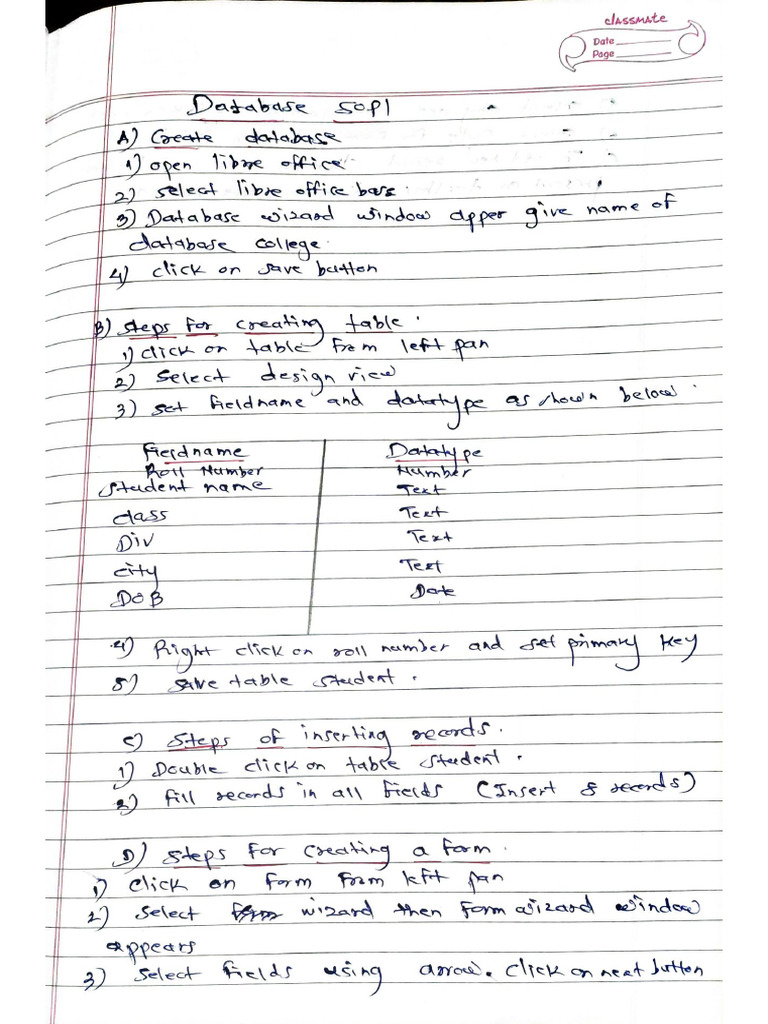 classmate
Date
Page
Database SOP1
A) Create database
1) open libre office
2) select libre office base.
3) Database wizard window apper give name of
database college.
4) click on save button
B) steps for creating table.
1) click on table from left pan
2) select design view
3) set fieldname and datatype as shown below.
Fieldname Datatype
Roll Number Number
student name Text
class Text
Div Text
city Text
DOB Date
4) Right click on roll number and set primary key
5) save table student.
c) Steps of inserting records.
1) Double click on table student.
2) fill records in all fields (Insert 8 records)
D) steps for creating a form.
1) click on form from left pan
2) select wizard then form wizard window
appears
3) select fields using arrow. click on next button